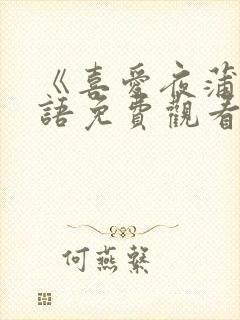 《喜愛夜蒲
語免費觀看
何燕繁